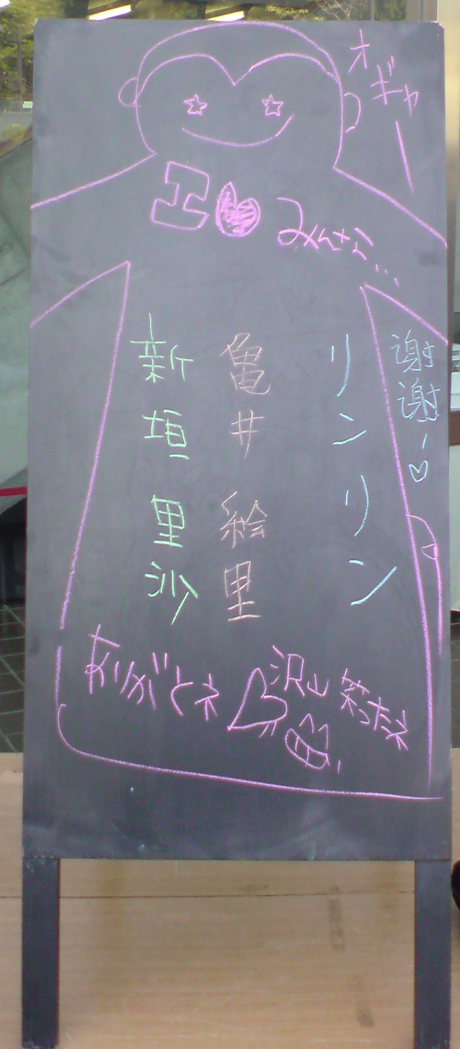 オギャー
エ
みんなに...
謝謝!♡
リンリン
亀井絵里
新垣里沙
ありがとネ
沢山笑ったネ